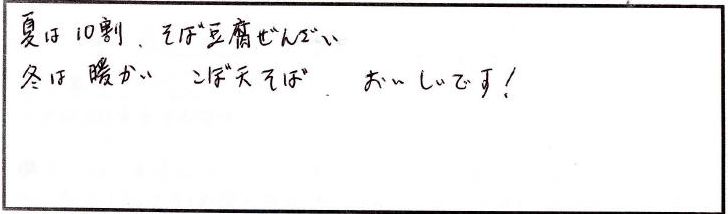 夏は10割、そば豆腐ぜんざい
冬は暖かい ごぼ天そば、おいしいです！